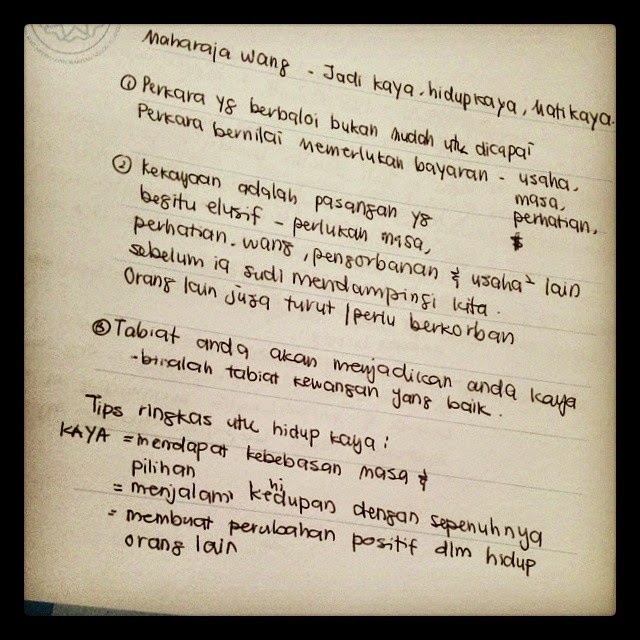 Maharaja Wang - Jadi kaya. hidup kaya, Mati kaya.
① Perkara yg berbaloi bukan mudah utk dicapai
Perkara bernilai memerlukan bayaran - usaha,
masa,
perhatian,
$
② Kekayaan adalah pasangan yg
begitu elusif - perlukan masa,
perhatian. wang, pengorbanan & usaha² lain
sebelum ia sudi mendampingi kita.
Orang lain juga turut / perlu berkorban
③ Tabiat anda akan menjadikan anda kaya
- binalah tabiat kewangan yang baik.
Tips ringkas utk hidup kaya:
KAYA = mendapat kebebasan masa &
pilihan
= menjalani kehidupan dengan sepenuhnya
= membuat perubahan positif dlm hidup
orang lain